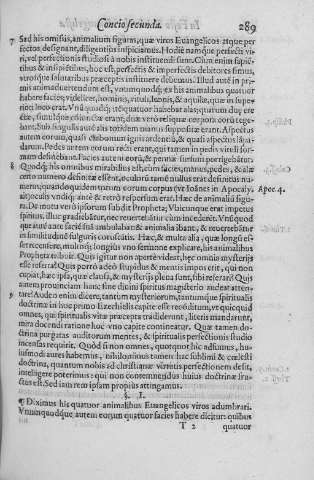 Concio secunda. 289
7 Sed his omissis, animalium figuras, quæ viros Euangelicos atque per
fectos designant, diligentius inspiciamus. Hodie nanque perfectis vi-
ri, vel perfectionis studiosi à nobis instituendi sunt. Cùm enim sapiē
tibus & insipiētibus, hoc est, perfectis & imperfectis debitores simus,
vtrosque salutaribus præceptis instruere debemus. Illud autē in pri-
mis aduertendum est, vnumquodq; ex his animalibus quatuor
habere facies; videlicet, hominis, vituli, leonis, & aquilæ, quæ in supe-
riori loco erat.
totidem manus suppositæ erant. Aspectus
autem eorum, quasi carbonum ignis ardentiū, & quasi aspectus lāpa-
darum. Pedes autem eorum recti erant, qui tamen in pedis vituli for-
mam desinebant. Facies autem eorū, & pennæ sursum porrigebātur.
8 Quodq; his omnibus mirabilius est, cùm facies, manus, pedes, & alæ
certo numero definitæ essent, oculorū tamē nullus erat definitus nu-
merus; quandoquidem totum eorum corpus (vt Ioānes in Apocaly. Apoc. 4.
ait) oculis vndiq; antè & retrò respersum erat. Hæc de animaliū figu-
ra. De motu verò ipsorum subdit Propheta; Vbicunque erat impetus
spiritus, illuc gradiebātur, nec reuertebātur cùm incederēt. Vnūquod
que autē antè faciē suā ambulabat: & animalia ibant, & reuertebātur
in similitudinē fulguris coruscātis. Hæc, & multa alia, quæ longū es-
set recensere, multoq; longius vno sermone explicare, his animalibus
Propheta tribuit. Quis igitur non apertè videat, hęc omnia mysterijs
esse referta? Quis porrò adeò stupidus & mentis impos erit, qui non
cupiat, hæc ipsa, quæ clausa, & mysterijs plena sunt, sibi reserari? Quis
autem pronunciam hanc sine digni spiritus magisterio audeat attēta-
9 tare? Audeo enim dicere, tantum mysteriorum, tantumque spiritualis
doctrinæ in hoc primo Ezechielis capite esse recōditum, vt quicquid
omnes, qui spiritualis vitæ præcepta tradiderunt, literis mandarunt,
mira docendi ratione hoc vno capite contineatur. Quæ tamen do-
ctrina purgatas auditorum mentes, & spiritualis perfectionis studio
incensas requirit. Quòd si non omnes, quotquot hic adsumus, hu-
iusmodi aures habemus, nihilominus tamen hæc sublimi & cœlesti
doctrina, quantum nobis ad christianæ virtutis perfectionem desit,
intelligere poterimus: qui non contemnendus huius doctrinæ fru-
ctus est. Sed iam rem ipsam propiùs attingamus.
§. I.
¶ Diximus his quatuor animalibus Euangelicos viros adumbrari.
Vnumquodque autem eorum quatuor facies habere dicitur: quibus
T 2 quatuor